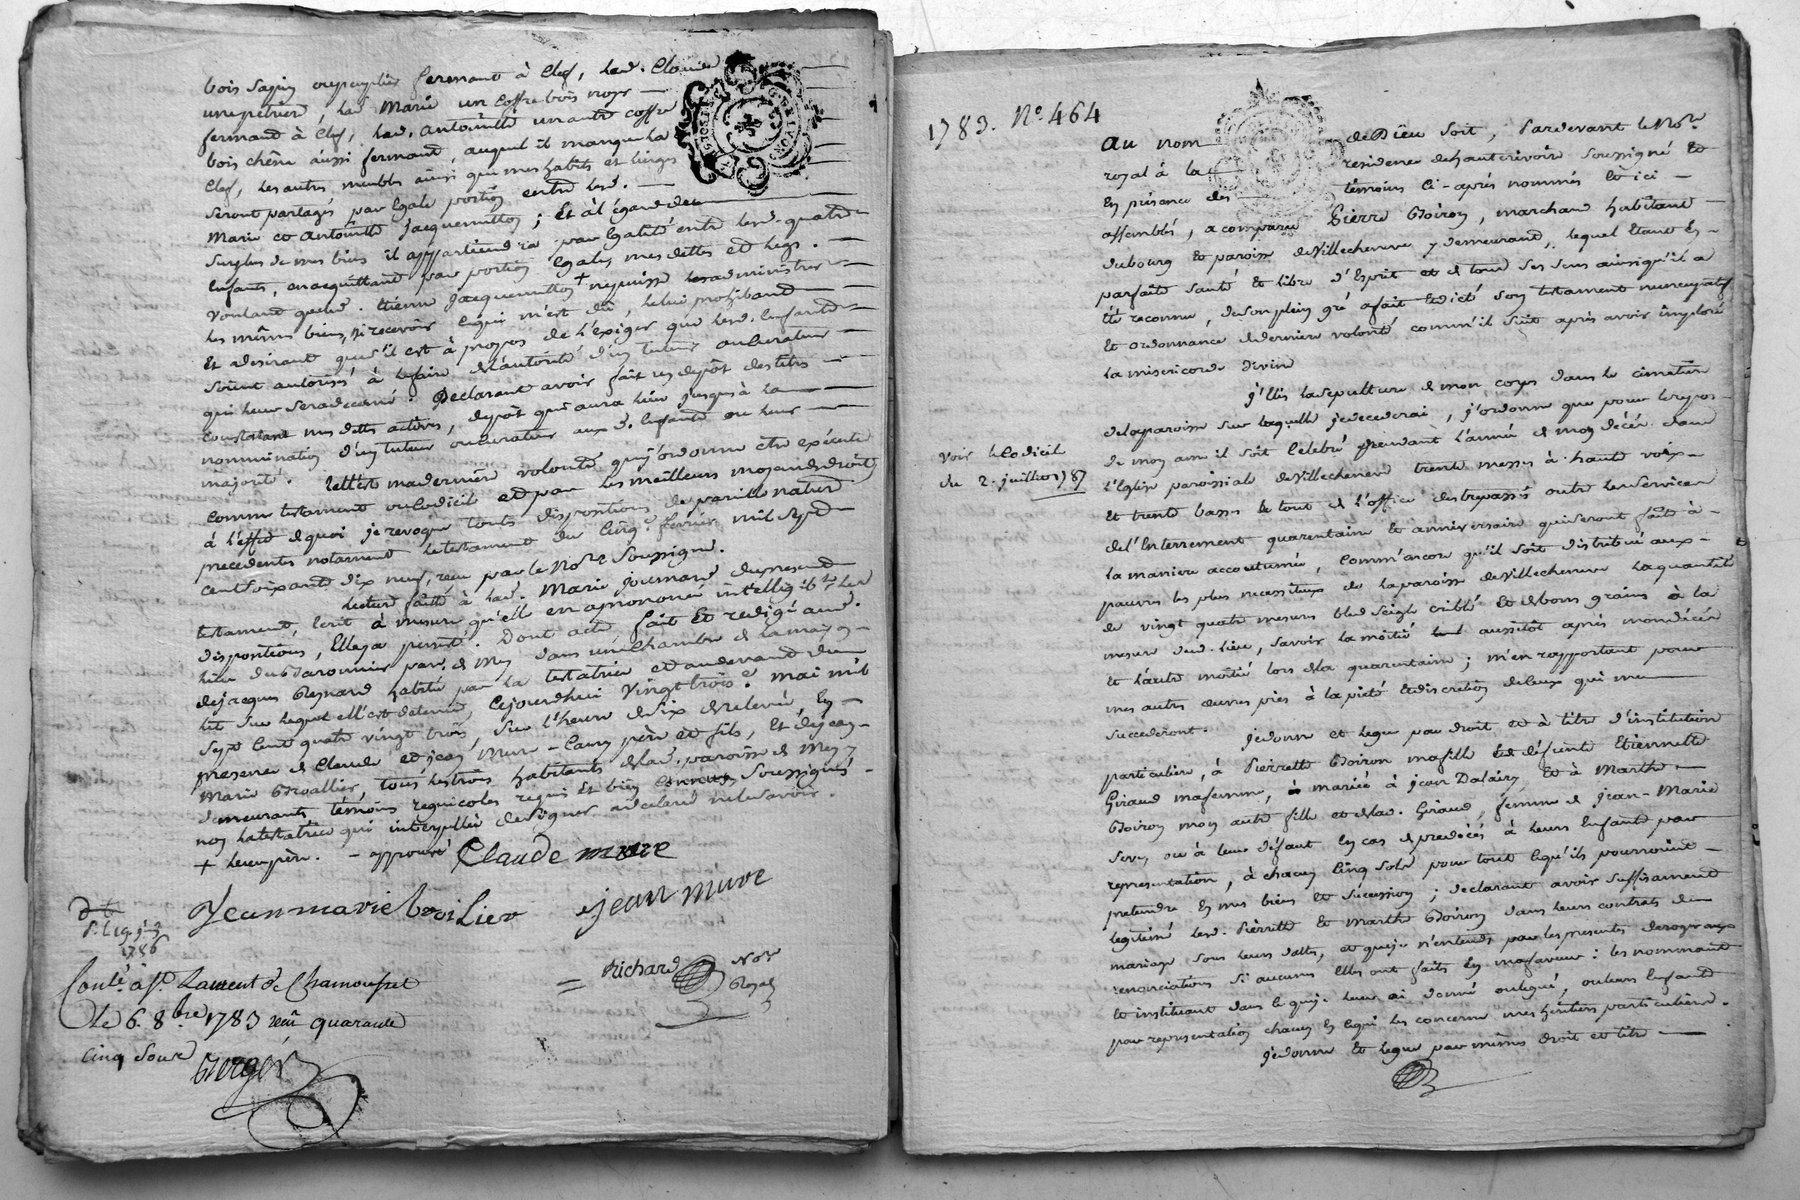 bois sapin fermant à Clef, lad. Claudine
une pétrière, lad. Marie un Coffre bois noyer
fermant à Clef, lad. Antoinette un autre coffre
bois chêne aussi fermant, auquel il manque la
Clef, les autres meubles ainsi que mes habits et linges
seront partagés par Egale portion entre lesd.
Marie et Antoinette Jacquemetton; Et à l'égard du
surplus de mes biens il appartiendra par Egalité entre lesd. quatre
Enfants, en acquittant par portion Egales mes dettes et legs.
Voulant que led. Etienne Jacquemetton + ne puisse les administrer
les mêmes biens, ni recevoir Ce qui m'est dû, le lui prohibant
Et desirant que s'il est à propos de l'exiger que lesd. Enfants
soient autorisés à le faire de l'autorité d'un tuteur ou Curateur
qui leur sera decerné. Declarant avoir fait dépôt des titres
Constatant mes dettes actives, dépôt qui aura lieu jusques à la
nomination d'un tuteur ou Curateur aux d. Enfants ou leur
majorité. Telle est ma dernière volonté que j'ordonne être exécutée
Comme testament ou Codicil et par les meilleurs moyens de droit
à l'effet de quoi je revoque toutes dispositions de pareille nature
precedentes notament le testament du Cinq février mil sept
cent soixante dix neuf, reçu par le No.re Soussigné.
Lecture faite à lad. Marie journard du present
testament, Ecrit à mesure qu'elle en a prononcé intelligib.t les
dispositions, Elle y a persisté. Dont acte fait Et redigé aud.
lieu du Varonnier par. de Mey dans une Chambre de la maison
de jacques Besnard habitée par la testatrice et au devant du
lit sur lequel ell'est detenue, Cejourdhui vingt trois.e mai mil
sept Cent quatre vingt trois, sur l'heure de six de relevée, En
presence de Claude et jean Mure-Camy père et fils, Et de jean
Marie Broallier, tous les trois habitants de lad. paroisse de Mey y
demeurants témoins regnicoles requis Et bien Connus Soussignés
non la testatrice qui interpellée de signer a déclaré ne le savoir.
+ leur père. - approuvé Claude mure
Jean marie broilier jean mure
1786
Richard No.re Royal
Conté à S.t Laurent de Chamousset
Le 6. 8.bre 1783 reçu quarante
cinq sous
Berger
1783. N.o 464
Au nom de Dieu soit, Pardevant le No.re
royal à la residence de hauterivoire Soussigné Et
En présence des témoins Ci-après nommés Et ici
assemblés, a comparu Pierre Boiron, marchand habitant
du bourg Et paroisse de Villechenève y demeurant, lequel Etant En
parfaite santé Et libre d'Esprit et de tous ses sens ainsi qu'il a
été reconnu, de son plein gré a fait Et dicté son testament nuncupatif
Et ordonnance de derniere volonté comm'il suit après avoir imploré
la misericorde divine
j'Elis la sepulture de mon corps dans le cimetière
de la paroisse sur laquelle je decederai, j'ordonne que pour le repos
de mon ame il soit Celebré pendant l'année de mon décés dans
l'Eglise paroissiale de Villechenève trente messes à haute voix
Et trente basses le tout de l'office des trepassés outre les services
de l'Enterrement quarantaine et anniversaire qui seront faits à
la maniere accoutumée, Comm'ancore qu'il soit distribué aux
pauvres les plus necessiteux de la paroisse de Villechenève la quantité
de vingt quatre mesures bled seigle criblé Et de bons grains à la
mesure dud. lieu, savoir la moitié aussitôt après mon décés
Et l'autre moitié lors de la quarantaine; m'en rapportant pour
mes autres œuvres pies à la pieté Et discretion de Ceux qui me
succederont. Je donne et legue par droit et à titre d'institution
particuliere, à Pierrette Boiron ma fille Et de défunte Etiennette
Giraud ma femme, mariée à jean Dalaix, Et à Marthe
Boiron mon autre fille et de lad. Giraud, femme de jean-Marie
Seve, ou à leur défaut En cas de predécés à leurs Enfants par
representation, à chacun Cinq sols pour tout Ce qu'ils pourroient
pretendre En mes biens et succession; declarant avoir suffisament
legitimé lesd. Pierrette Et marthe Boiron dans leurs contrats de
mariage sous leurs dattes, et que je n'entends par les presentes deroger aux
renonciations Si aucunes Elles ont faits En ma faveur: les nommant
Et instituant dans Ce que je leur ai donné ou legué, ou leurs Enfants
par representation chacun En Ce qui les concerne mes héritiers particuliers.
Je donne Et legue par mêmes droit et titre
Voir le Codicil
du 2. juillet 1787